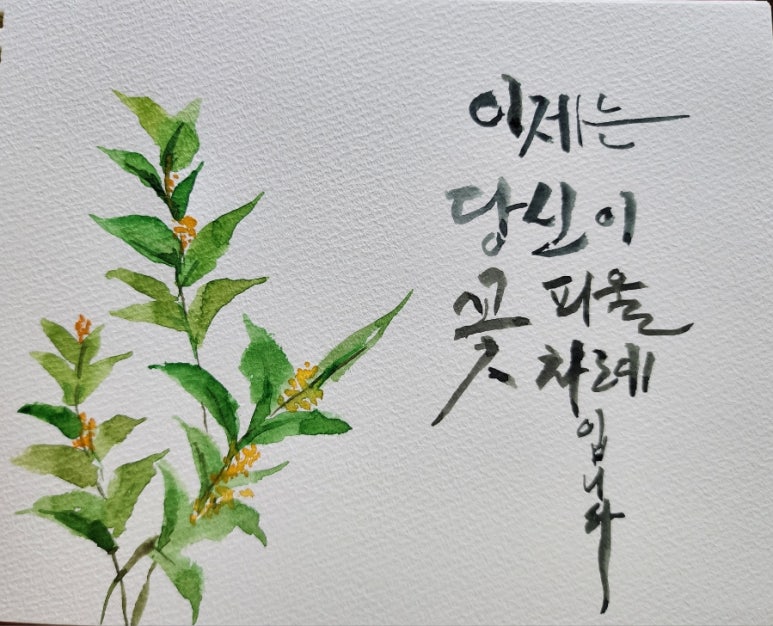 이제는
당신이
꽃 피울
차례
입니다